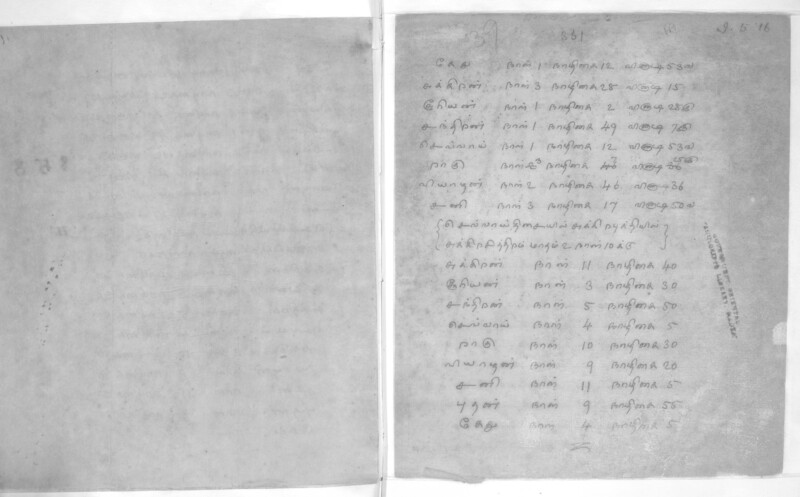 331
கேது நாள் 1 நாழிகை 12 விநாடி 53வ
சுக்கிரன் நாள் 3 நாழிகை 28 விநாடி 15
சூரியன் நாள் 1 நாழிகை 2 விநாடி
சந்திரன் நாள் 1 நாழிகை 49 விநாடி
செவ்வாய் நாள் 1 நாழிகை 12 விநாடி 53வ
ராகு நாள் நாழிகை விநாடி
வியாழன் நாள் 2 நாழிகை 46 விநாடி 36
சனி நாள் 3 நாழிகை 17 விநாடி 50வ
{செவ்வாய் திசையில் சுக்கிர புத்தியில்}
சுக்கிரன் நாள் 11 நாழிகை 40
சூரியன் நாள் 3 நாழிகை 30
சந்திரன் நாள் 5 நாழிகை 50
செவ்வாய் நாள் 4 நாழிகை 5
ராகு நாள் 10 நாழிகை 30
வியாழன் நாள் 9 நாழிகை 20
சனி நாள் 11 நாழிகை 5
புதன் நாள் 9 நாழிகை 55
கேது நாள் 4 நாழிகை 5